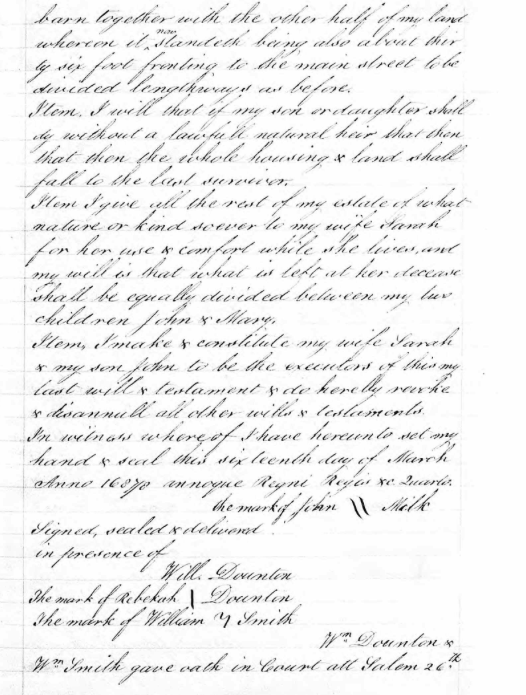 barn together with the other half of my land
whereon it now standeth being also about thir
ty six foot fronting to the main street to be
divided lengthways as before.
Item. I will that if my son or daughter shall
dy without a lawfull natural heir that then
that then the whole housing & land shall
fall to the last survivor.
Item I give all the rest of my estate of what
nature or kind soever to my wife Sarah
for her use & comfort while she lives, and
my will is that what is left at her decease
shall be equally divided between my two
children John & Mary.
Item, I make & constitute my wife Sarah
& my son John to be the executors of this my
last will & testament & do herebly revoke
& disannull all other wills & testaments.
In witness whereof I have hereunto set my
hand & seal this sixteenth day of March
Anno 1687/8 annoque Regni Regis &c Quarto.
the mark of John \\ Milk
Signed, sealed & delivered
in presence of
Will. Dounton
The mark of Rebekah | Dounton
The mark of William Smith
Wm Dounton &
Wm Smith gave oath in Court att Salem 26th